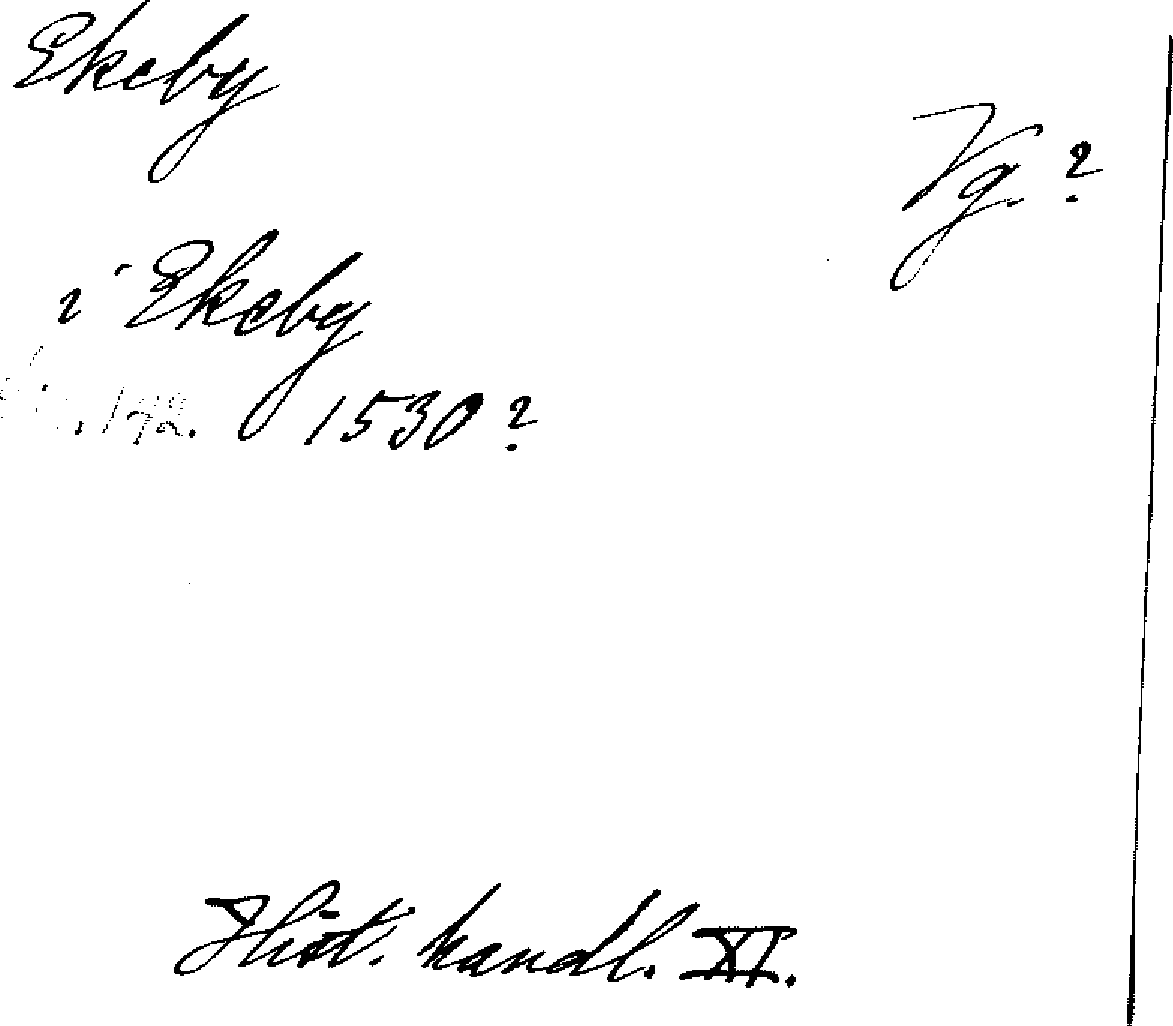 Ekeby
Vg. ?
i Ekeby
142. 1530?
Hist. handl. XI.